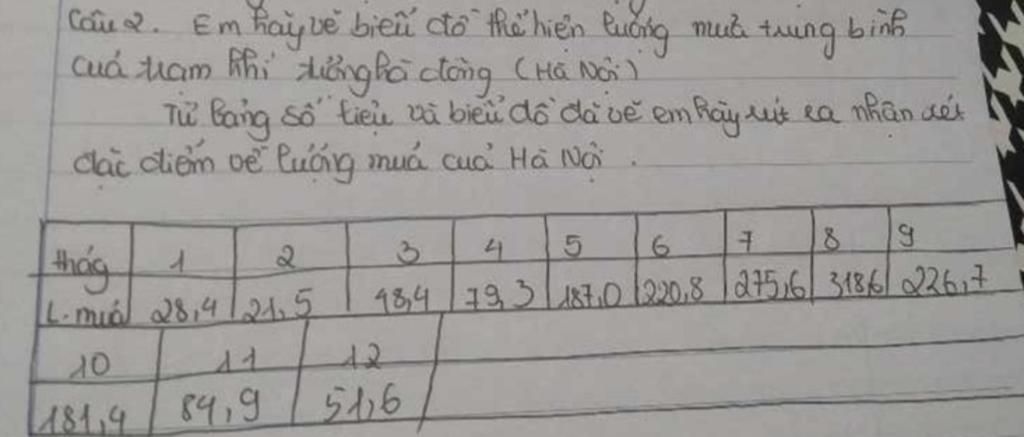 Câu 2. Em hãy vẽ biểu đồ thể hiện lượng mưa trung bình
của trạm khí tượng Hà đông (Hà Nội)
Từ bảng số liệu và biểu đồ đã vẽ em hãy rút ra nhận xét
đặc điểm về lượng mưa của Hà Nội.
thág 1 2 3 4 5 6 7 8 9
L. mưa 28,4 21,5 48,4 79,3 187,0 220,8 275,6 318,6 226,7
10 11 12
181,4 84,9 51,6